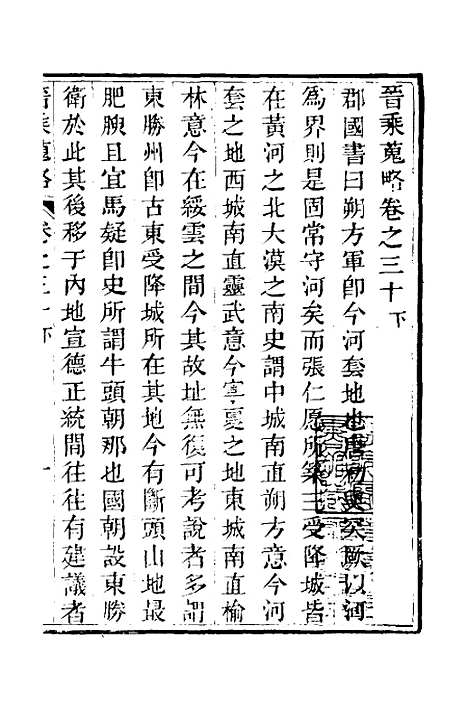 晉乘蒐略卷之三十下
郡國書曰朔方軍卽今河套地也唐初與突厥以河
爲界則是固常守河矣而張仁愿所築三受降城皆
在黃河之北大漠之南史謂中城南直朔方意今河
套之地西城南直靈武意今寧夏之地東城南直榆
林意今在綏雲之間今其故址無復可考說者多謂
東勝州卽古東受降城所在其地今有斷頭山地最
肥腴且宜馬疑卽史所謂牛頭朝那也國朝設東勝
衛於此其後移于內地宣德正統間往往有建議者
晉乘蒐略 卷之三十下 一